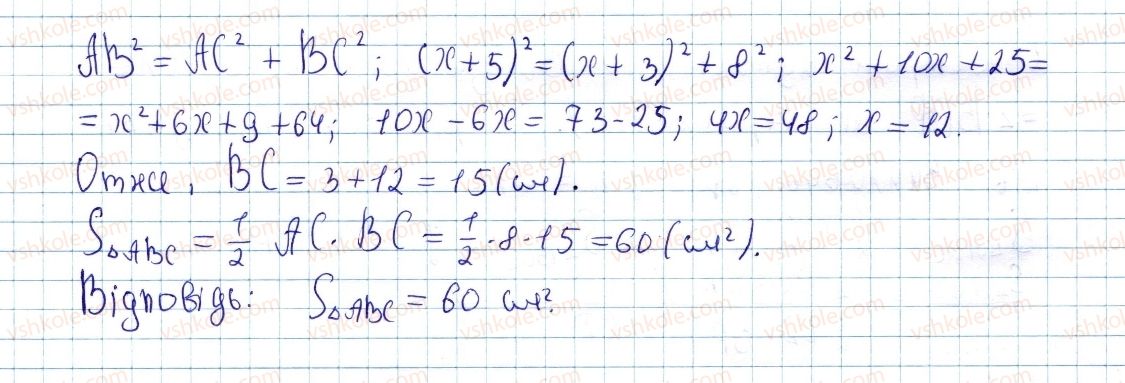 AB² = AC² + BC²; (x+5)² = (x+3)² + 8²; x² + 10x + 25 =
= x² + 6x + 9 + 64; 10x - 6x = 73 - 25; 4x = 48; x = 12.
Отже, BC = 3 + 12 = 15 (см).
S△ABC = 1/2 AC · BC = 1/2 · 8 · 15 = 60 (см²).
Відповідь: S△ABC = 60 см².